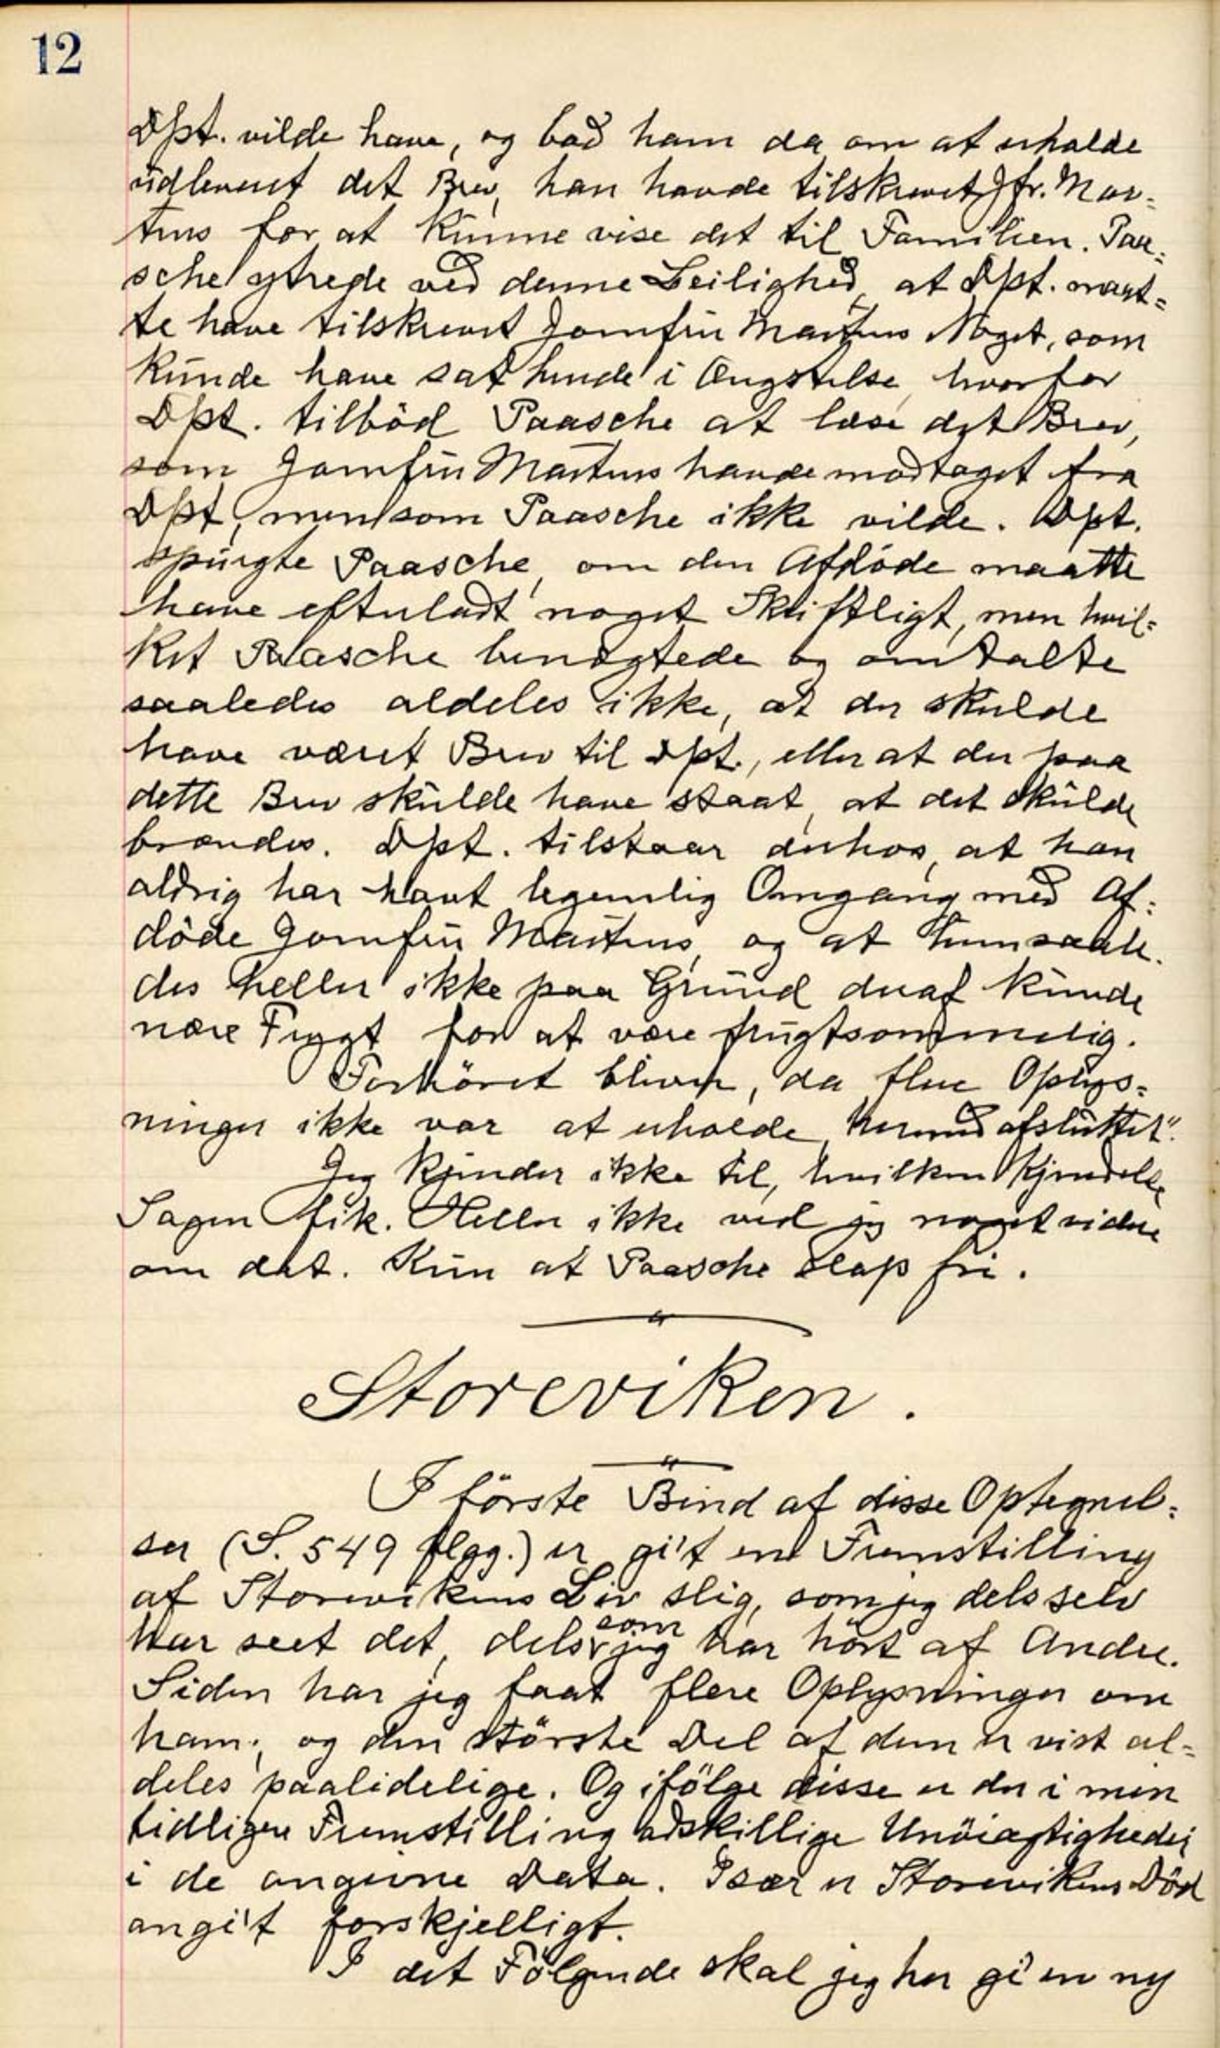 12
Dpt. vilde have, og bad ham da om at erholde
udleveret det Brev, han havde tilskrevet Jfr. Mar-
tens for at kunne vise det til Familien. Paa-
sche ytrede ved denne Leilighed, at Dpt. maat-
te have tilskrevet Jomfru Martens Noget, som
kunde have sat hende i Ængstelse, hvorfor
Dpt. tilböd Paasche at læse det Brev,
som Jomfru Martens havde modtaget fra
Dpt., men som Paasche ikke vilde. Dpt.
spurgte Paasche, om den Afdöde maatte
have efterladt noget Skriftligt, men hvil-
ket Paasche benægtede og omtalte
saaledes aldeles ikke, at der skulde
have været Brev til Dpt., eller at der paa
dette Brev skulde have staat, at det skulde
brændes. Dpt. tilstaar derhos, at han
aldrig har havt legemlig Omgang med Af-
döde Jomfru Martens, og at hun saale-
des heller ikke paa Grund deraf kunde
nære Frygt for at være frugtsommelig.
Forhöret bliver, da flere Oplys-
ninger ikke var at erholde, hermed afsluttet".
Jeg kjender ikke til, hvilken Kjendelse
Sagen fik. Heller ikke ved jeg noget videre
om det. Kun at Paasche slap fri.
Storeviken.
I förste Bind af disse Optegnel-
ser (S. 549 flgg.) er gi't en Fremstilling
af Storevikens Liv slig, som jeg dels selv
har seet det, dels som jeg har hört af Andre.
Siden har jeg faat flere Oplysninger om
ham, og den störste Del af dem er vist al-
deles paalidelige. Og ifölge disse er der i min
tidligere Fremstilling adskillige Unöiagtigheder
i de angivne Data. Især er Storevikens Död
angi't forskjelligt.
I det Fölgende skal jeg her gi en ny